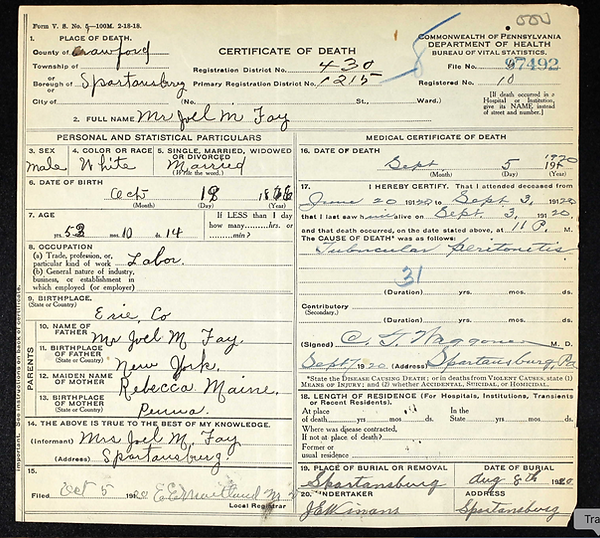 Form V. S. No. 5—100M. 2-18-18.
1. PLACE OF DEATH.
County of Crawford
Township of
or
Borough of Spartansburg
or
City of
CERTIFICATE OF DEATH
Registration District No. 430
Primary Registration District No. 1215
(No. St., Ward.)
COMMONWEALTH OF PENNSYLVANIA
DEPARTMENT OF HEALTH
BUREAU OF VITAL STATISTICS.
File No. 97492
Registered No. 10
[If death occurred in a
Hospital or Institution,
give its NAME instead
of street and number.]
2. FULL NAME Mr Joel M Fay
PERSONAL AND STATISTICAL PARTICULARS
3. SEX
Male
4. COLOR OR RACE
White
5. SINGLE, MARRIED, WIDOWED
OR DIVORCED
(Write the word.)
Married
6. DATE OF BIRTH
Oct 18
(Month) (Day) (Year)
7. AGE
yrs. mos. 10 ds. 14
If LESS than 1 day
how many hrs. or
min.?
8. OCCUPATION
(a) Trade, profession, or
particular kind of work Labor.
(b) General nature of industry,
business, or establishment in
which employed (or employer)
9. BIRTHPLACE.
(State or Country)
Erie, Co
PARENTS
10. NAME OF
FATHER
Mr Joel M Fay.
11. BIRTHPLACE
OF FATHER
(State or Country)
New York.
12. MAIDEN NAME
OF MOTHER
Rebecca Maine.
13. BIRTHPLACE
OF MOTHER
(State or Country)
Penna.
14. THE ABOVE IS TRUE TO THE BEST OF MY KNOWLEDGE.
(Informant) Mrs Joel M. Fay
(Address) Spartansburg
15.
Filed Oct 5 1920 E.E. Maitland M.D.
Local Registrar
MEDICAL CERTIFICATE OF DEATH
16. DATE OF DEATH
Sept 5 1920
(Month) (Day) (Year)
17. I HEREBY CERTIFY, That I attended deceased from
June 20 1920 to Sept 3, 1920
that I last saw him alive on Sept. 3, 1920,
and that death occurred, on the date stated above, at 11 P. M.
The CAUSE OF DEATH* was as follows:
Tubercular peritonitis
31
(Duration) yrs. mos. ds.
Contributory
(Secondary.)
(Duration) yrs. mos. ds.
(Signed) Waggoner M. D.
Sept 7 1920 (Address) Spartansburg, Pa
*State the DISEASE CAUSING DEATH; or in deaths from VIOLENT CAUSES, state (1)
MEANS OF INJURY; and (2) whether ACCIDENTAL, SUICIDAL, OR HOMICIDAL.
18. LENGTH OF RESIDENCE (For Hospitals, Institutions, Transients
or Recent Residents).
At place In the
of death yrs. mos. ds. State yrs. mos. ds.
Where was disease contracted,
If not at place of death?
Former or
usual residence
19. PLACE OF BURIAL OR REMOVAL
Spartansburg
DATE OF BURIAL
Aug 8th 1920
20. UNDERTAKER
J.E. Winans
ADDRESS
Spartansburg
Important. See instructions on back of certificate.
Tra